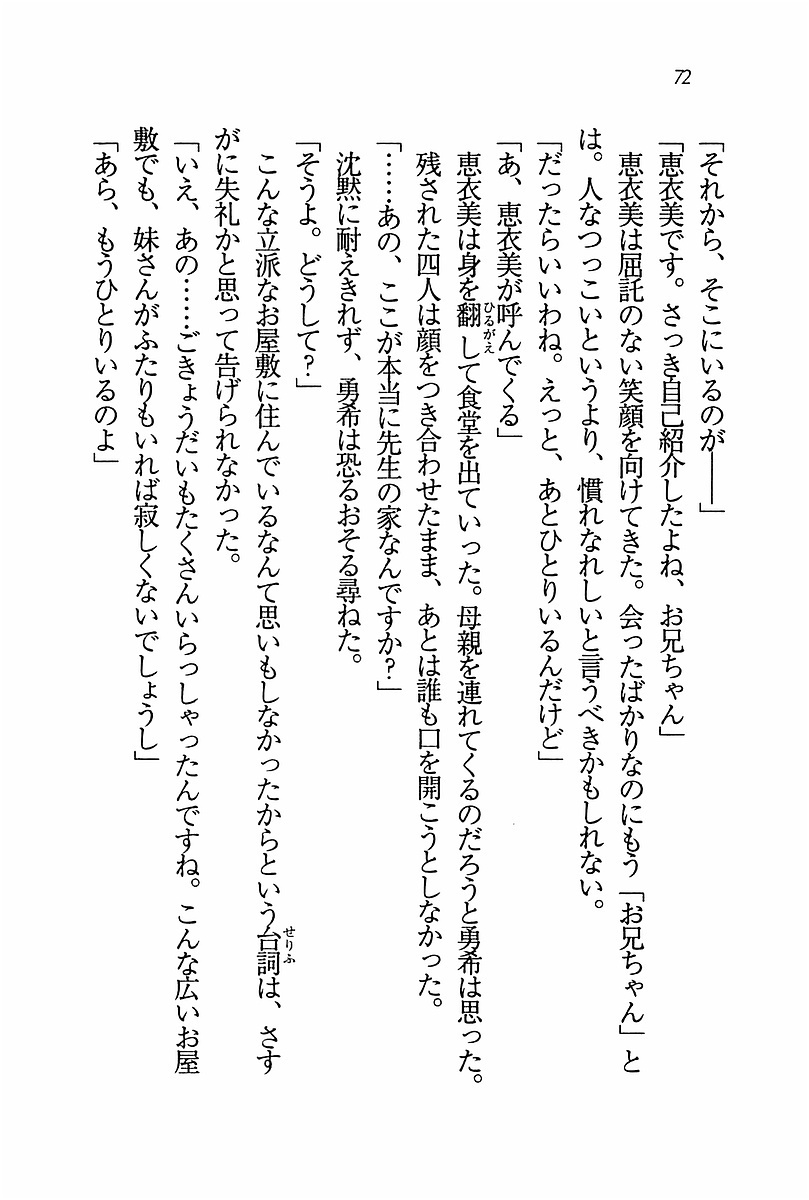 72
「それから、そこにいるのが――」
「恵衣美です。さっき自己紹介したよね、お兄ちゃん」
　恵衣美は屈託のない笑顔を向けてきた。会ったばかりなのにもう「お兄ちゃん」と
は。人なつっこいというより、慣れなれしいと言うべきかもしれない。
「だったらいいわね。えっと、あとひとりいるんだけど」
「あ、恵衣美が呼んでくる」
　恵衣美は身を翻ひるがえして食堂を出ていった。母親を連れてくるのだろうと勇希は思った。
　残された四人は顔をつき合わせたまま、あとは誰も口を開こうとしなかった。
「……あの、ここが本当に先生の家なんですか？」
　沈黙に耐えきれず、勇希は恐るおそる尋ねた。
「そうよ。どうして？」
　こんな立派なお屋敷に住んでいるなんて思いもしなかったからという台詞せりふは、さす
がに失礼かと思って告げられなかった。
「いえ、あの……ごきょうだいもたくさんいらっしゃったんですね。こんな広いお屋
敷でも、妹さんがふたりもいれば寂しくないでしょうし」
「あら、もうひとりいるのよ」